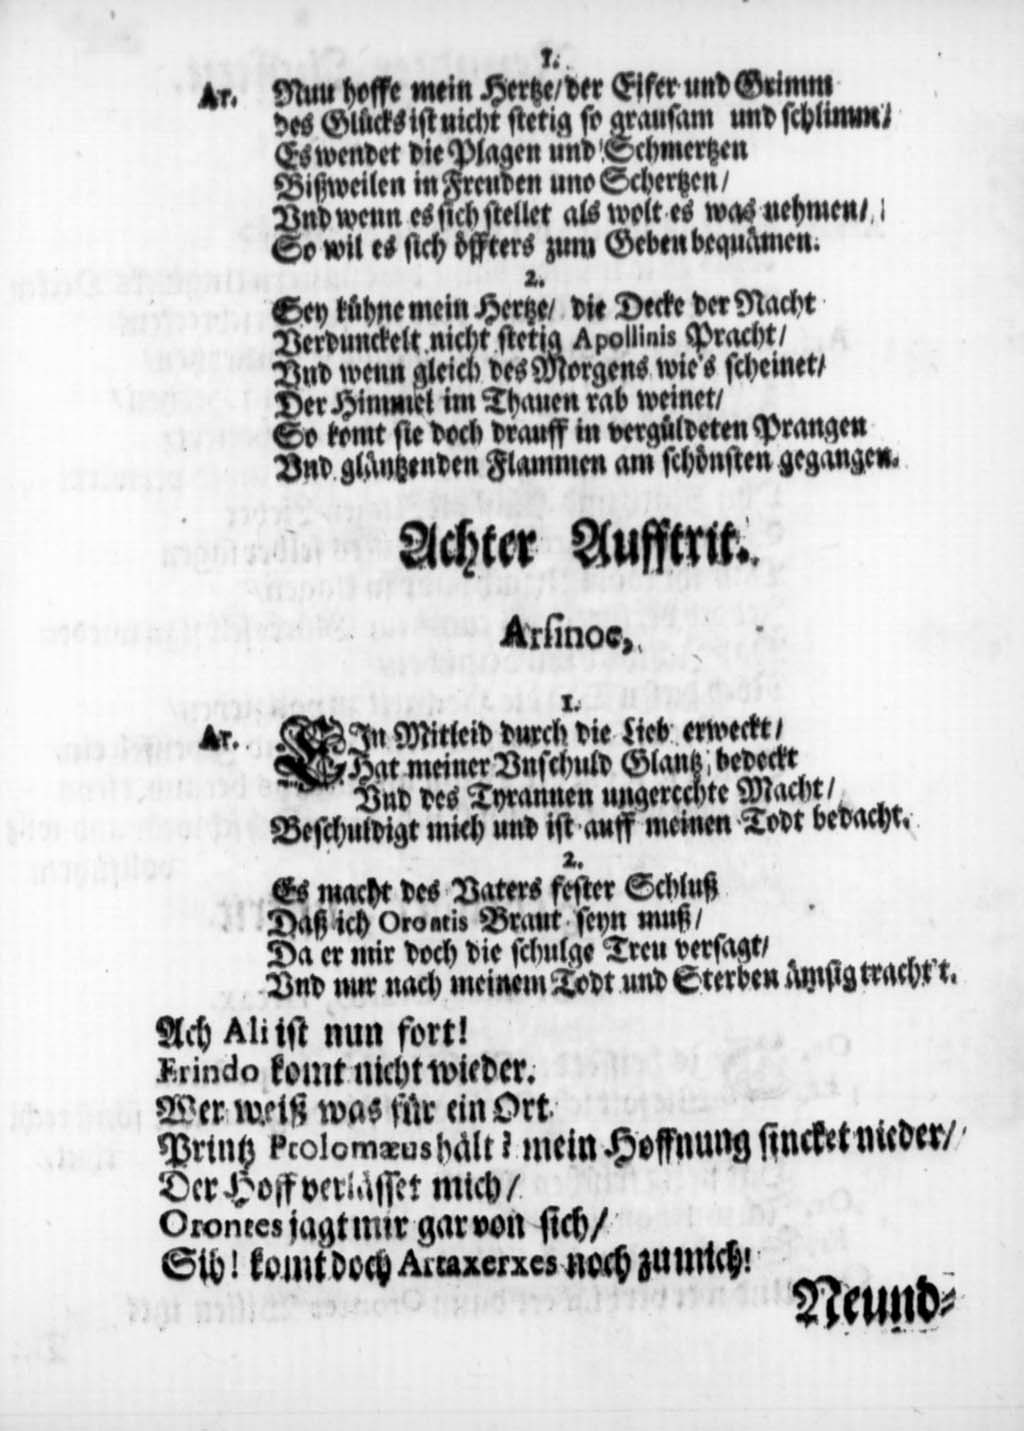 1.
Ar. Nuu hoffe mein Hertze/ der Eifer und Grimm
des Glücks ist nicht stetig so grausam und schlimm/
Es wendet die Plagen und Schmertzen
Bißweilen in Freuden uno Schertzen/
Vnd wenn es sich stellet als wolt es was nehmen/
So wil es sich öffters zum Geben bequämen.
2.
Sey kühne mein Hertze/ die Decke der Nacht
Verdunckelt nicht stetig Apollinis Pracht/
Vnd wenn gleich des Morgens wie's scheinet/
Der Himmel im Thauen rab weinet/
So komt sie doch drauff in vergüldeten Prangen
Vnd gläntzenden Flammen am schönsten gegangen.
Achter Aufftrit.
Arsinoe,
1.
Ar. EJn Mitleid durch die Lieb erweckt/
Hat meiner Vnschuld Glantz bedeckt
Vnd des Tyrannen ungerechte Macht/
Beschuldigt mich und ist auff meinen Todt bedacht.
2.
Es macht des Vaters fester Schluß
Daß ich Orontis Braut seyn muß/
Da er mir doch die schulge Treu versagt/
Vnd nur nach meinem Todt und Sterben ämsig tracht't.
Ach Ali ist nun fort!
Erindo komt nicht wieder.
Wer weiß was für ein Ort
Printz Ptolomæus hält? mein Hoffnung sincket nieder/
Der Hoff verlässet mich/
Orontes jagt mir gar von sich/
Sih! komt doch Artaxerxes noch zu mich!
Neund-